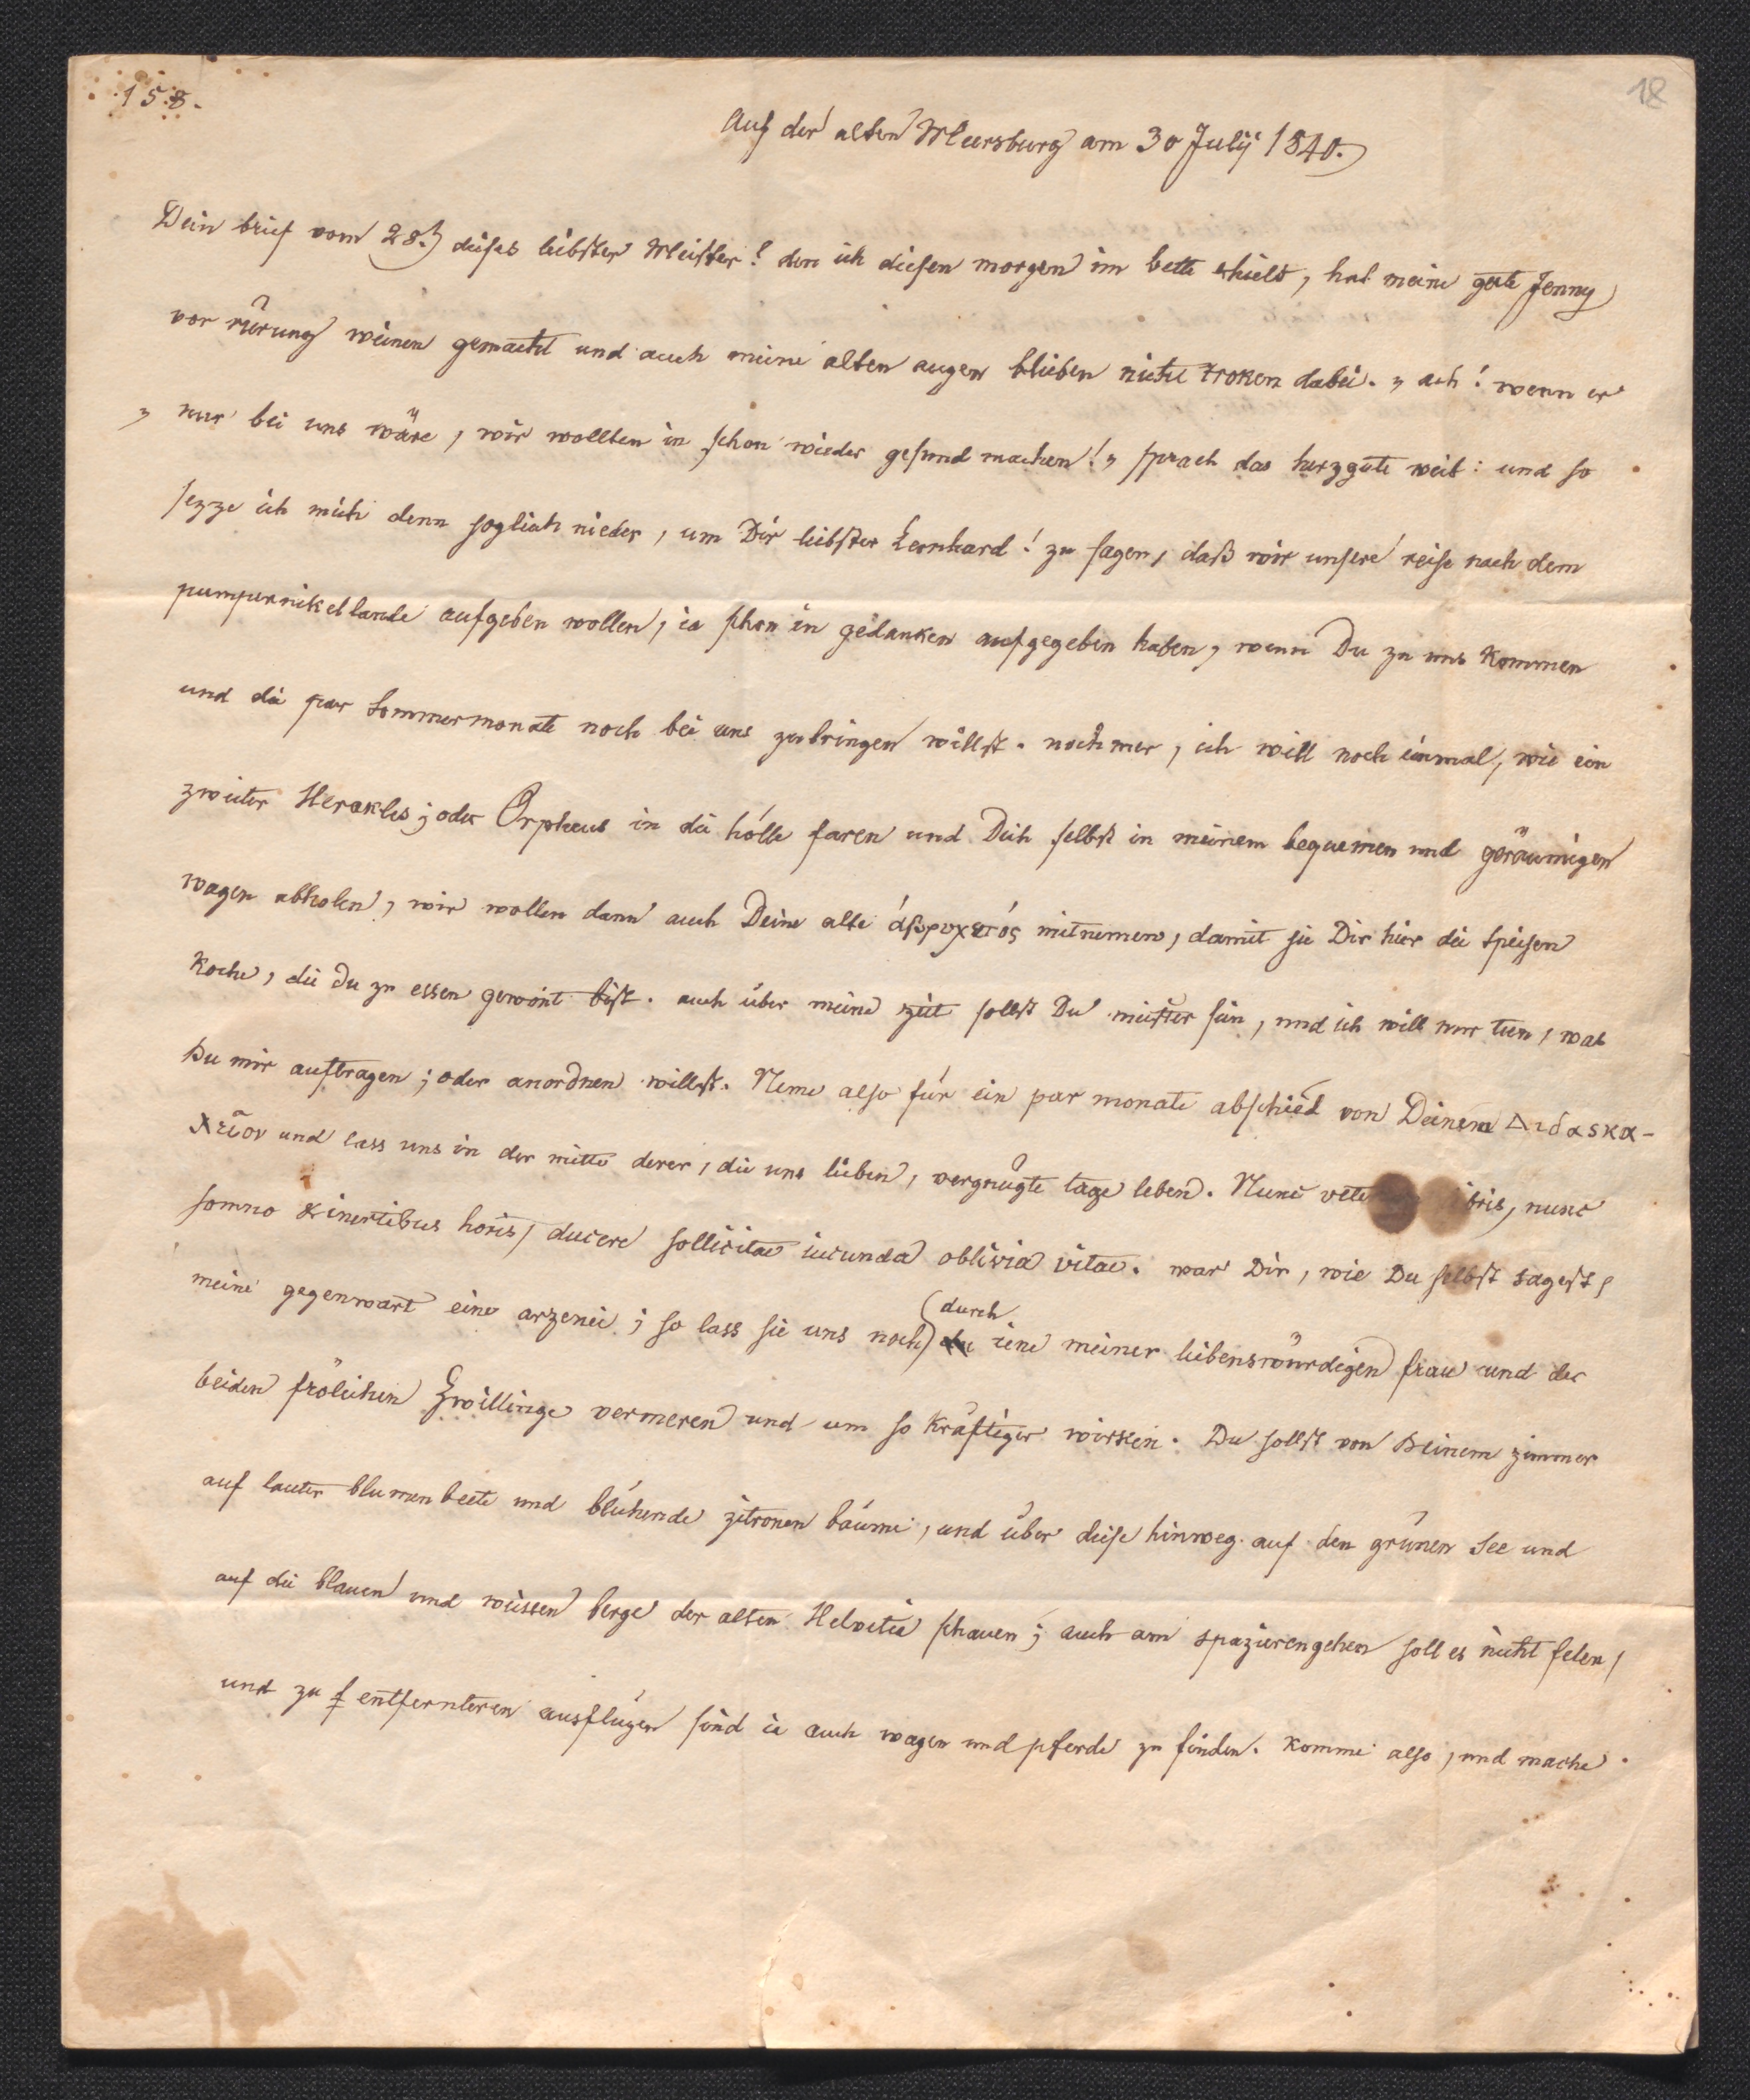 158.
18
Auf der alten Meersburg am 30 Julÿ 1840.
Dein brief vom 28.t dieses liebster Meister! den ich diesen morgen im bette erhielt, hat meine gute Jenny
vor rürung weinen gemacht und auch meine alten augen blieben nicht troken dabei. „ ach! wenn er
„ nur bei uns wäre, wir wollten in schon wieder gesund machen! „ sprach das herzgute weib: und so
sezze ich mich denn sogleich nieder, um Dir liebster Leonhard! zu sagen, daß wir unsere reise nach dem
pumpernikellande aufgeben wollen, ia schon in gedanken aufgegeben haben, wenn Du zu uns kommen
und die par Sommermonate noch bei uns zubringen willst. noch mer, ich will noch einmal, wie ein
zweiter Herakles; oder Orpheus in die hölle faren und Dich selbst in meinem bequemen und geräumigen
wagen abholen, wir wollen dann auch Deine alte mitnemen, damit sie Dir hier die speisen
koche, die du zu essen gewont bist. auch über meine zeit sollst Du meister sein, und ich will nur tun, was
Du mir auftragen; oder anordnen willst. Neme also für ein par monate abschied von Deinem Διδασκα-
λεῖον und lass uns in der mitte derer, die uns lieben, vergnügte tage leben. Nunc vete ibris, nunc
somno & inertibus horis, ducere sollicitae iucunda oblivia vitae. war Dir, wie Du selbst sagest,
meine gegenwart eine arzenei; so lass sie uns noch durch iene meiner liebenswürdigen frau und der
beiden frölichen Zwillinge vermeren und um so kräftiger wirken. Du sollst von Deinem zimmer
auf lauter blumenbeete und blühende zitronen bäume, und über diese hinweg auf den grünen See und
auf die blauen und weissen berge der alten Helvetia schauen; auch am spazierengehen soll es nicht felen,
und zu entfernteren ausflügen sind ia auch wagen und pferde zu finden. komme also, und mache